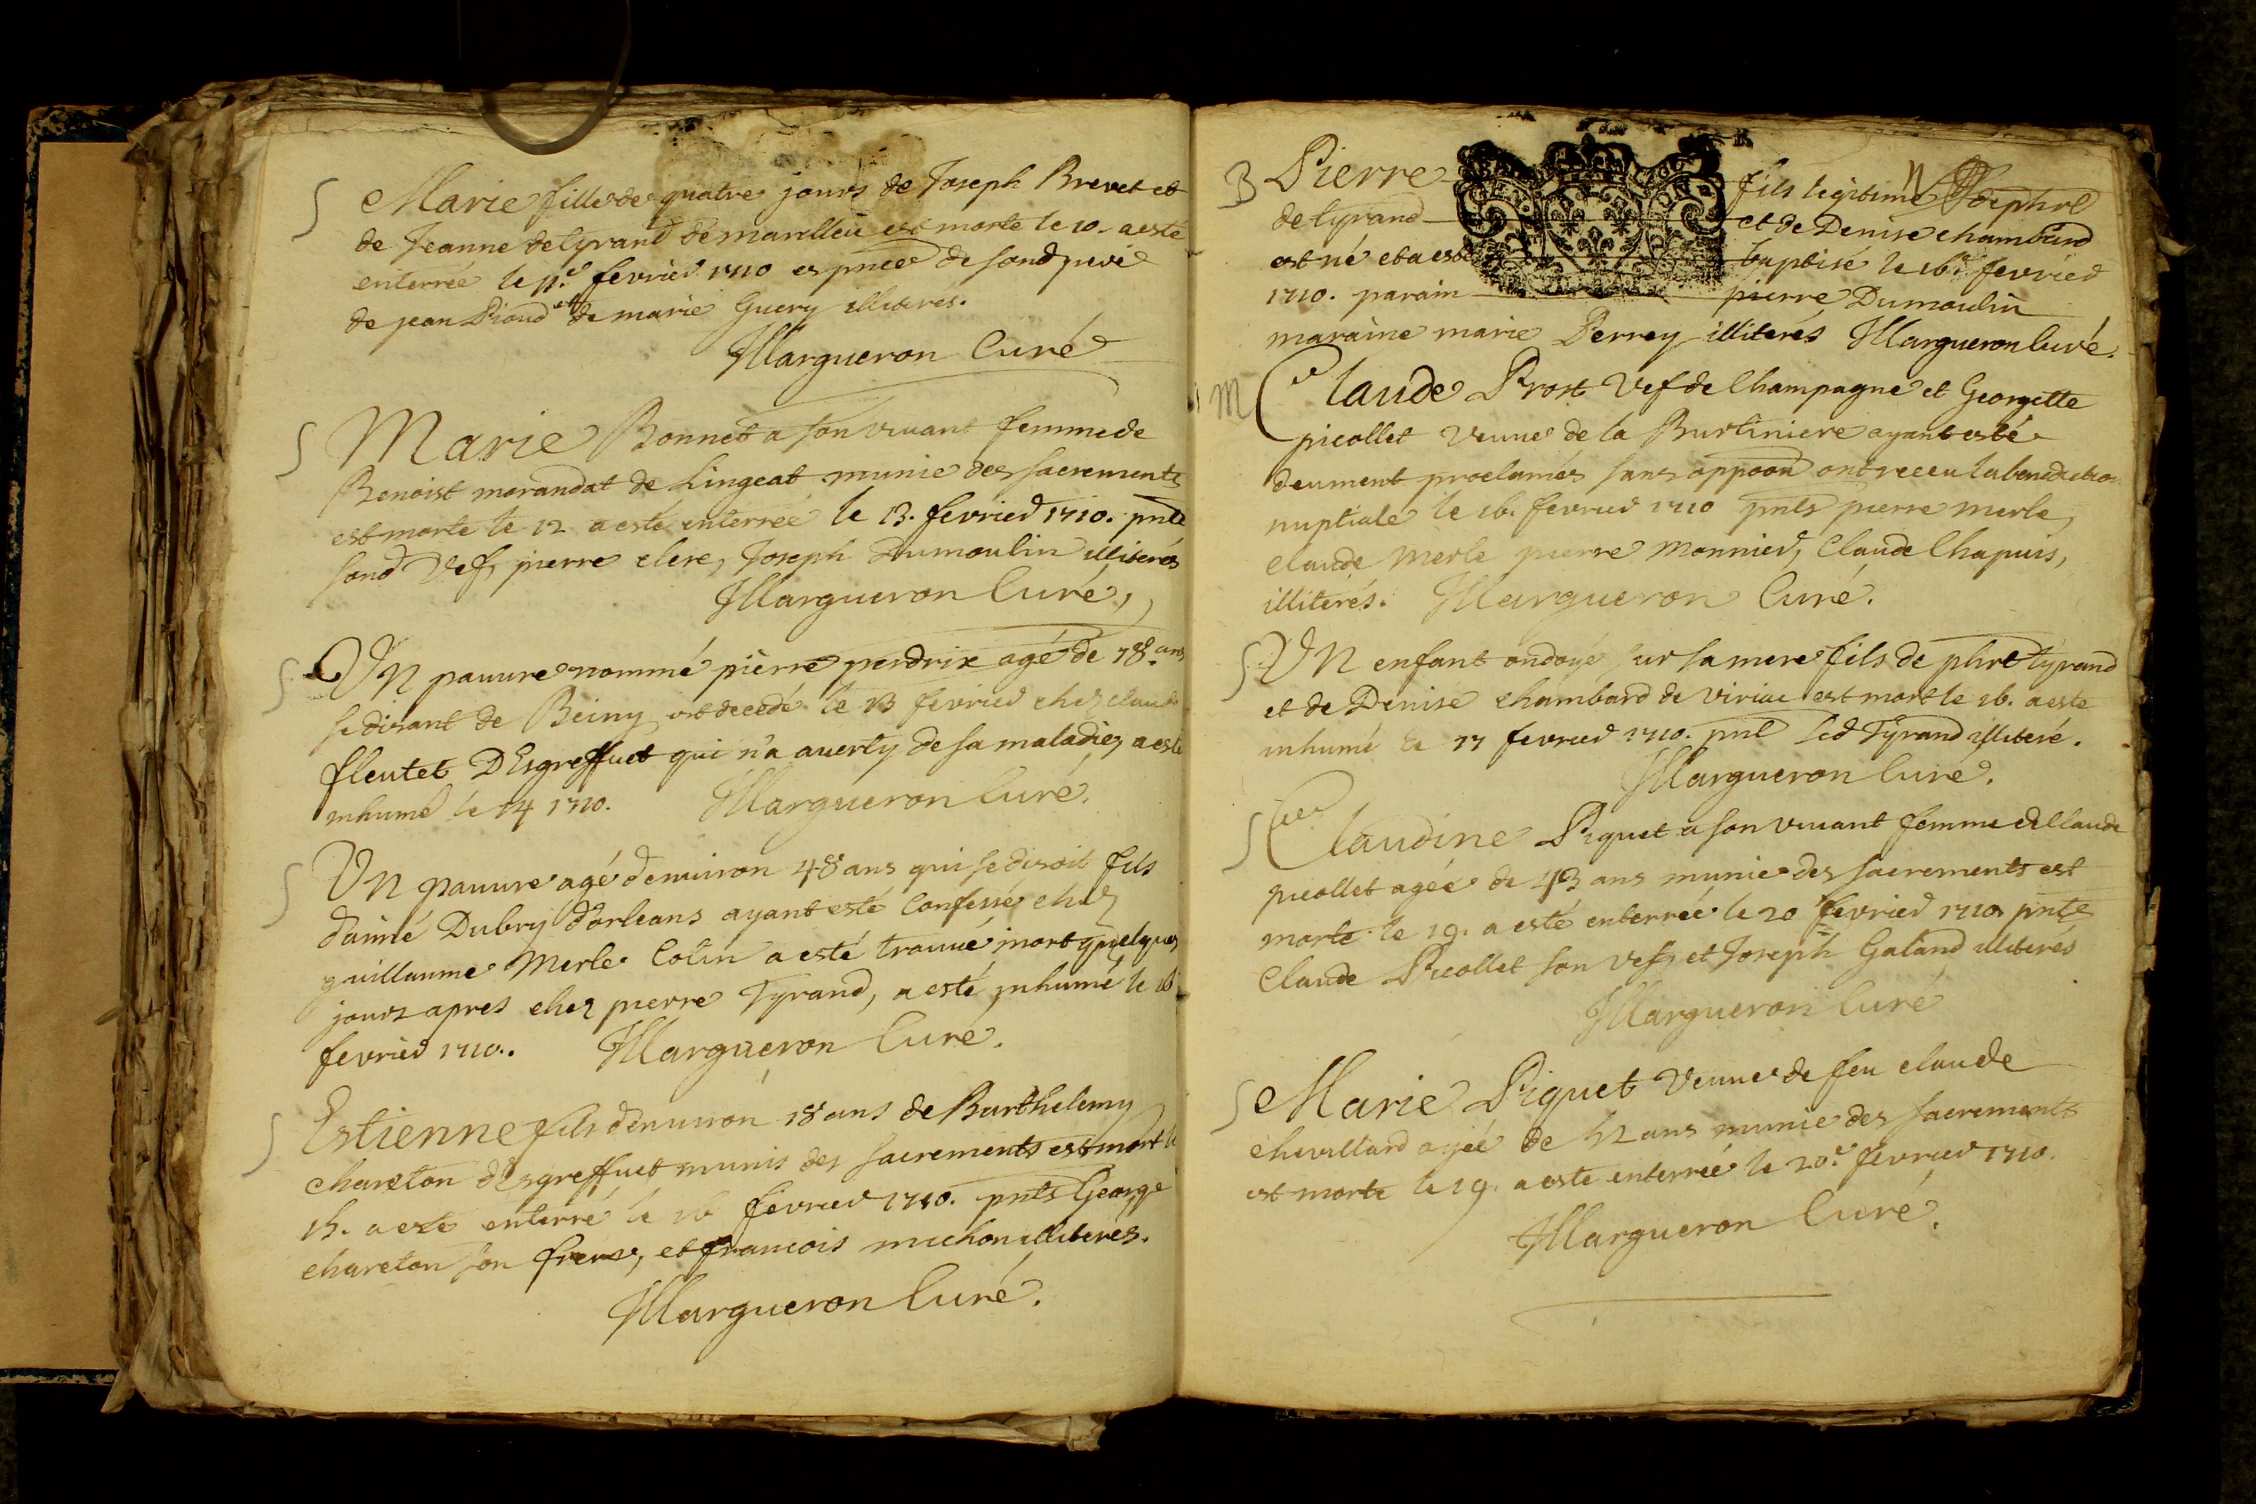 S Marie fille de quatre jours de Joseph Brevet et
de Jeanne detyrand de marilleu est morte le 10. a esté
enterrée le 11.e fevrier 1710 es pnce de sond pere
de jean Dioud et de marie Guery illiteres.
Margueron Curé
S Marie Bonnet a son vivant femme de
Benoist morandat de Lingeat munie des sacrements
est morte le 12 a esté enterrée le 13. fevrier 1710. pnts
sond Vef, pierre clere, Joseph Dumoulin illiterés
Margueron Curé,
S Un pauure nommé pierre perdrix agé de 78. ans
se disant de Beiny est decedé le 13 fevrier chez claude
fleutet D'Esgreffuet qui n'a averty de sa maladie, a esté
inhumé le 14 1710. Margueron Curé.
S Un pauure agé denuiron 48 ans qui se disoit fils
daimé Dubry d'orleans ayant esté Confessé chez
guillaume Merle Colin a esté trouué mort quelques
jours apres chez pierre Tyrand, a esté inhumé le 16
fevrier 1710.. Margueron Curé.
S Estienne fils denuiron 18 ans de Barthelemy
chareton d'Esgreffuet munis des sacrements est mort le
15. a esté enterré le 16 fevrier 1710. pnts George
chareton son frere, et francois michon illiterés.
Margueron Curé.
B Pierre fils legitime
detyrand et de Denise chambard
est né et a esté baptisé le 16.e fevrier
1710. parain pierre Dumoulin
maraine marie Perrey illiterés Margueron Curé.
M Claude Prost Vef de Champagne et Georgette
picollet veuue de la Burtiniere ayant esté
deument proclamés sans appoon ont receu la benedictio
nuptiale le 16. fevrier 1710 pnts pierre merle,
claude Merle pierre Monnier, Claude Chapuis,
illiterés. Margueron Curé.
S UN enfant ondoyé sur sa mere fils de phrt tyrand
et de Denise chambard de viriac est mort le 16. a esté
inhumé le 17 fevrier 1710. pnt led Tyrand illiteré.
Margueron Curé.
S Claudine Piquet a son vivant femme de Claude
picollet agée de 43 ans munie des sacrements est
morte le 19. a esté enterrée le 20 fevrier 1710 pnts
Claude Picollet son Vef, et Joseph Galand illiterés
Margueron Curé
S Marie Piquet veuue de feu claude
chevillard agée de 52 ans munie des sacrements
est morte le 19. a esté enterrée le 20.e fevrier 1710.
Margueron Curé.